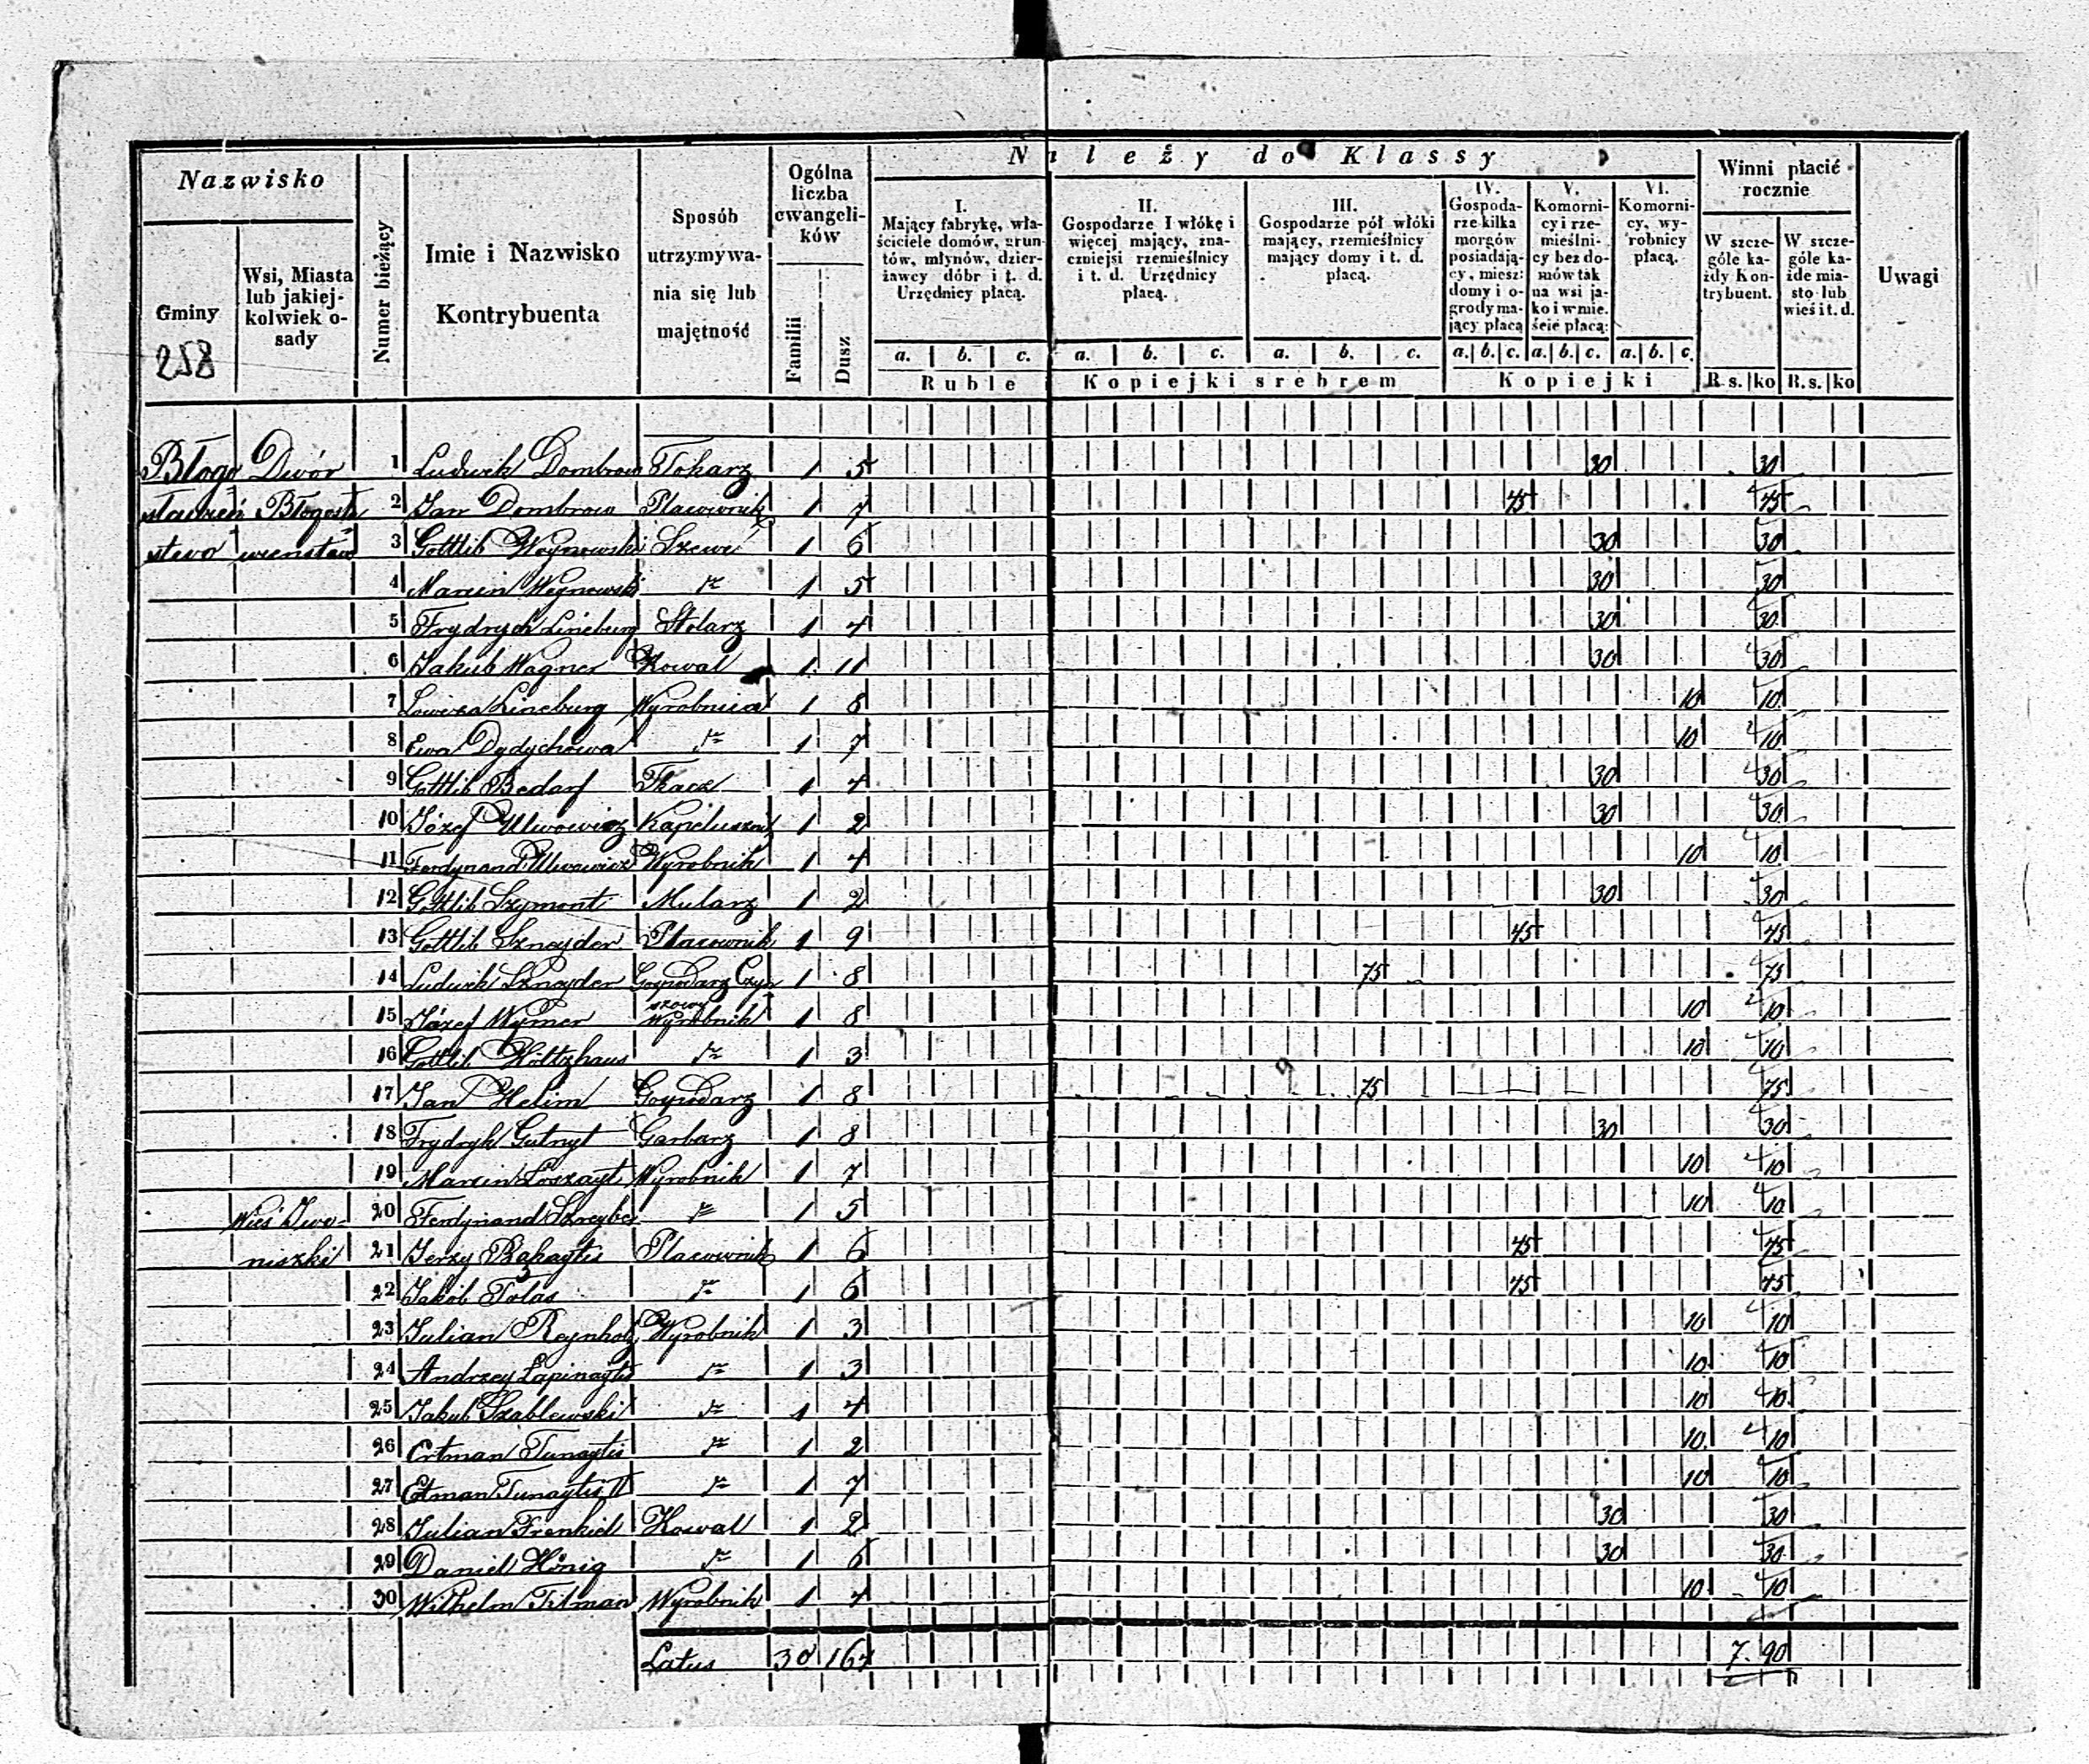 Należy do Klassy
Nazwisko
Gminy
Wsi, Miasta lub jakiejkolwiek osady
Numer bieżący
Imie i Nazwisko
Kontrybuenta
Sposób
utrzymywa-
nia się lub
majętność
Ogólna
liczba
ewangeli-
ków
Familii
Dusz
I.
Mający fabrykę, wła-
ściciele domów, grun-
tów, młynów, dzier-
żawcy dóbr i t. d.
Urzędnicy płacą.
II.
Gospodarze 1 włókę i
więcej mający, zna-
czniejsi rzemieślnicy
i t. d. Urzędnicy
płacą.
III.
Gospodarze pół włóki
mający, rzemieślnicy
mający domy i t. d.
płacą.
IV.
Gospoda-
rze kilka
morgów
posiadają-
cy, miesz:
domy i o-
grody ma-
jący płacą
V.
Komorni-
cy i rze-
mieślni-
cy bez do-
mów tak
na wsi ja-
ko i w mie.
ście płacą:
VI.
Komorni-
cy, wy-
robnicy
płacą.
Winni płacić
rocznie
W szcze-
góle ka-
żdy Kon-
trybuent.
W szcze-
góle ka-
żde mia-
sto lub
wieś i t. d.
Uwagi
258
a. b. c. a. b. c. a. b. c. a. b. c. a. b. c. a. b. c.
Ruble Kopiejki srebrem Kopiejki R.s. ko R.s. ko
Błogo Dwór 1 Ludwik Dombrow Tokarz 1 5 30 30
sławień Błogosła 2 Jan Dombrow Placownik 1 7 45 45
stwo wienstwo 3 Gottlib Woynowski Szewc 1 6 30 30
4 Marcin Woynowski 1 5 30 30
5 Frydrych Lineburg Stolarz 1 4 30 30
6 Jakub Wagner Kowal 1 11 30 30
7 Lowiza Lineburg Wyrobnica 1 8 10 10
8 Ewa Dydychowa 1 7 10 10
9 Gottlib Bedarf Tkacz 1 4 30 30
10 Józef Ulwowicz Kapelusznik 1 2 30 30
11 Ferdynand Ulwowicz Wyrobnik 1 4 10 10
12 Gottlib Szymont Mularz 1 2 30 30
13 Gottlib Sznayder Placownik 1 9 45 45
14 Ludwik Sznayder Gospodarz Czyn 1 8 75 75
szowy
15 Józef Wymer Wyrobnik 1 8 10 10
16 Gottlib Höltzhaus 1 3 10 10
17 Jan Helim Gospodarz 1 8 75 75
18 Frydryk Gutnyt Garbarz 1 8 30 30
19 Marcin Loszayt Wyrobnik 1 7 10 10
Wieś Iwa- 20 Ferdynand Szreyber 1 5 10 10
niszki 21 Jerzy Bakaytis Placownik 1 6 45 45
22 Jakób Tolas 1 6 45 45
23 Julian Reynholz Wyrobnik 1 3 10 10
24 Andrzey Lapinaytis 1 3 10 10
25 Jakub Szablewski 1 4 10 10
26 Ertman Tunaytis 1 2 10 10
27 Ertman Tunaytis II 1 7 10 10
28 Julian Frenkiel Kowal 1 2 30 30
29 Daniel Hönig 1 6 30 30
30 Wilhelm Tilman Wyrobnik 1 4 10 10
Latus 30 167 7. 90